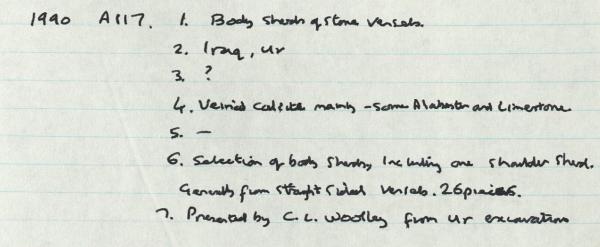 1990 A117. 1. Body Sherds of Stone Vessels.
2. Iraq, Ur
3. ?
4. Veined Calcite mainly - some Alabaster and Limestone
5. —
6. Selection of body sherds, including one shoulder sherd.
Generally from straight sided vessels. 26 pieces.
7. Presented by C. L. Woolley from Ur excavations